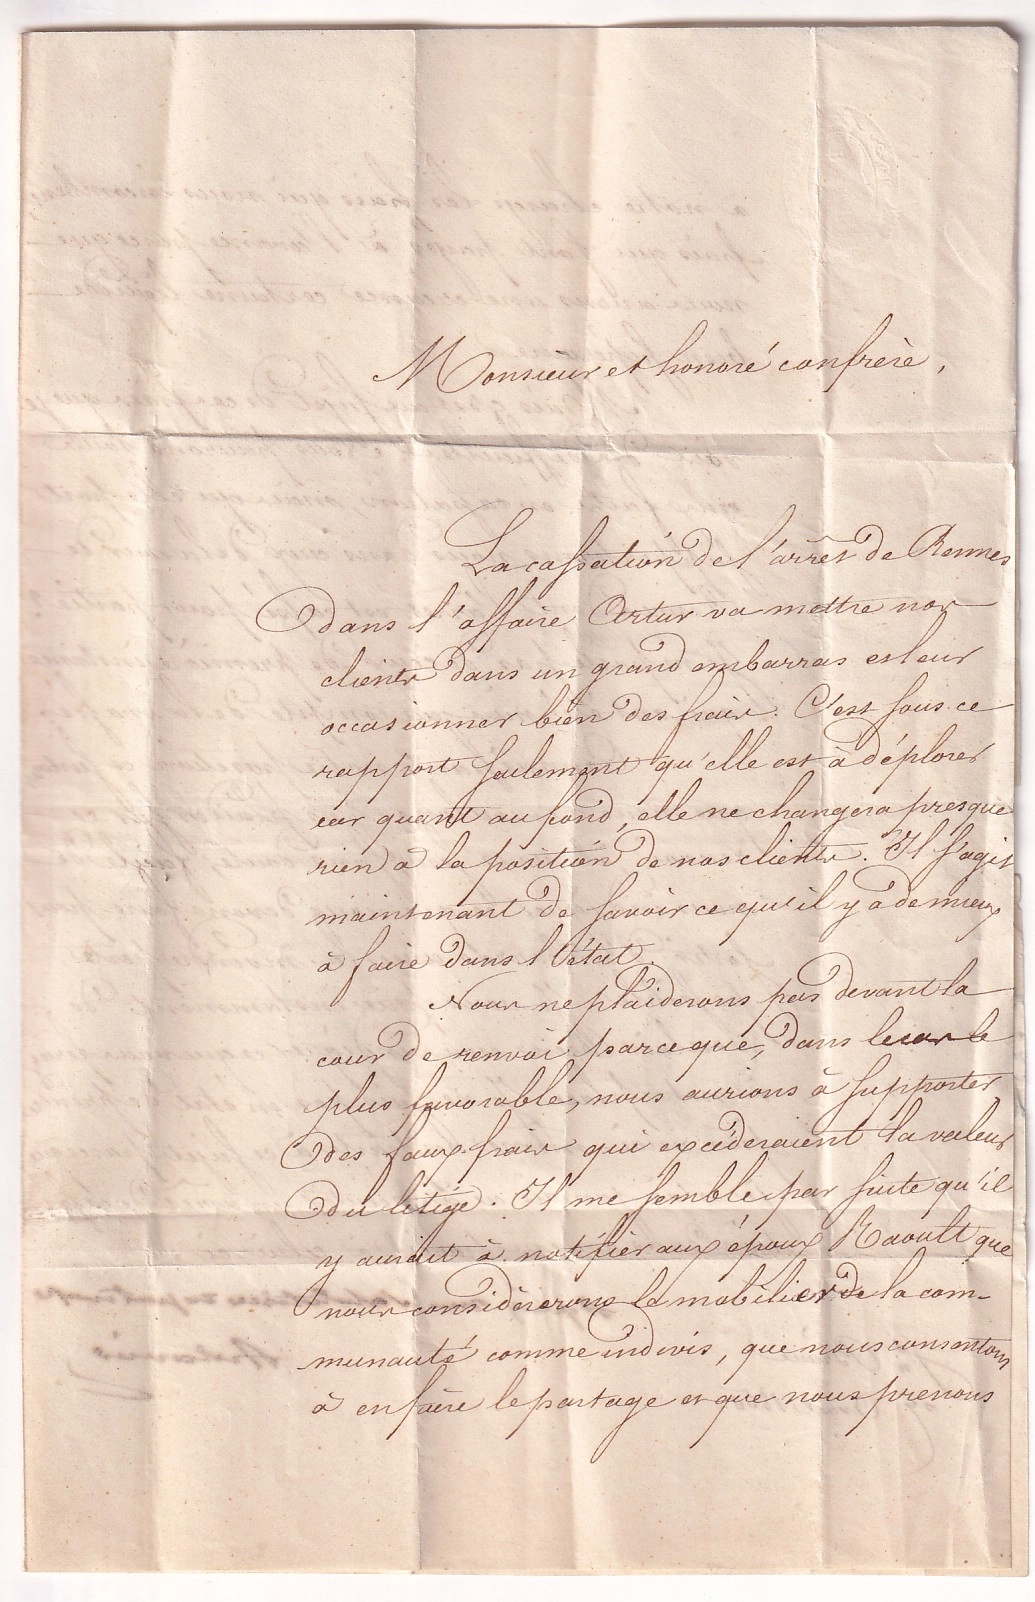 Monsieur et honoré confrère,
La cassation de l'arrêt de Rennes
dans l'affaire Artur va mettre nos
clients dans un grand embarras et leur
occasionner bien des frais. C'est sous ce
rapport seulement qu'elle est à déplorer
car quant au fond, elle ne changera presque
rien à la position de nos clients. Il s'agit
maintenant de savoir ce qu'il y a de mieux
à faire dans l'état.
Nous ne plaiderons pas devant la
cour de renvoi parceque, dans le cas le
plus favorable, nous aurions à supporter
des faux frais qui excéderaient la valeur
du litige. Il me semble par suite qu'il
y aurait à notifier aux époux Raoult que
nous considérerons le mobilier de la com-
munauté comme indivis, que nous consentons
à en faire le partage et que nous prenons